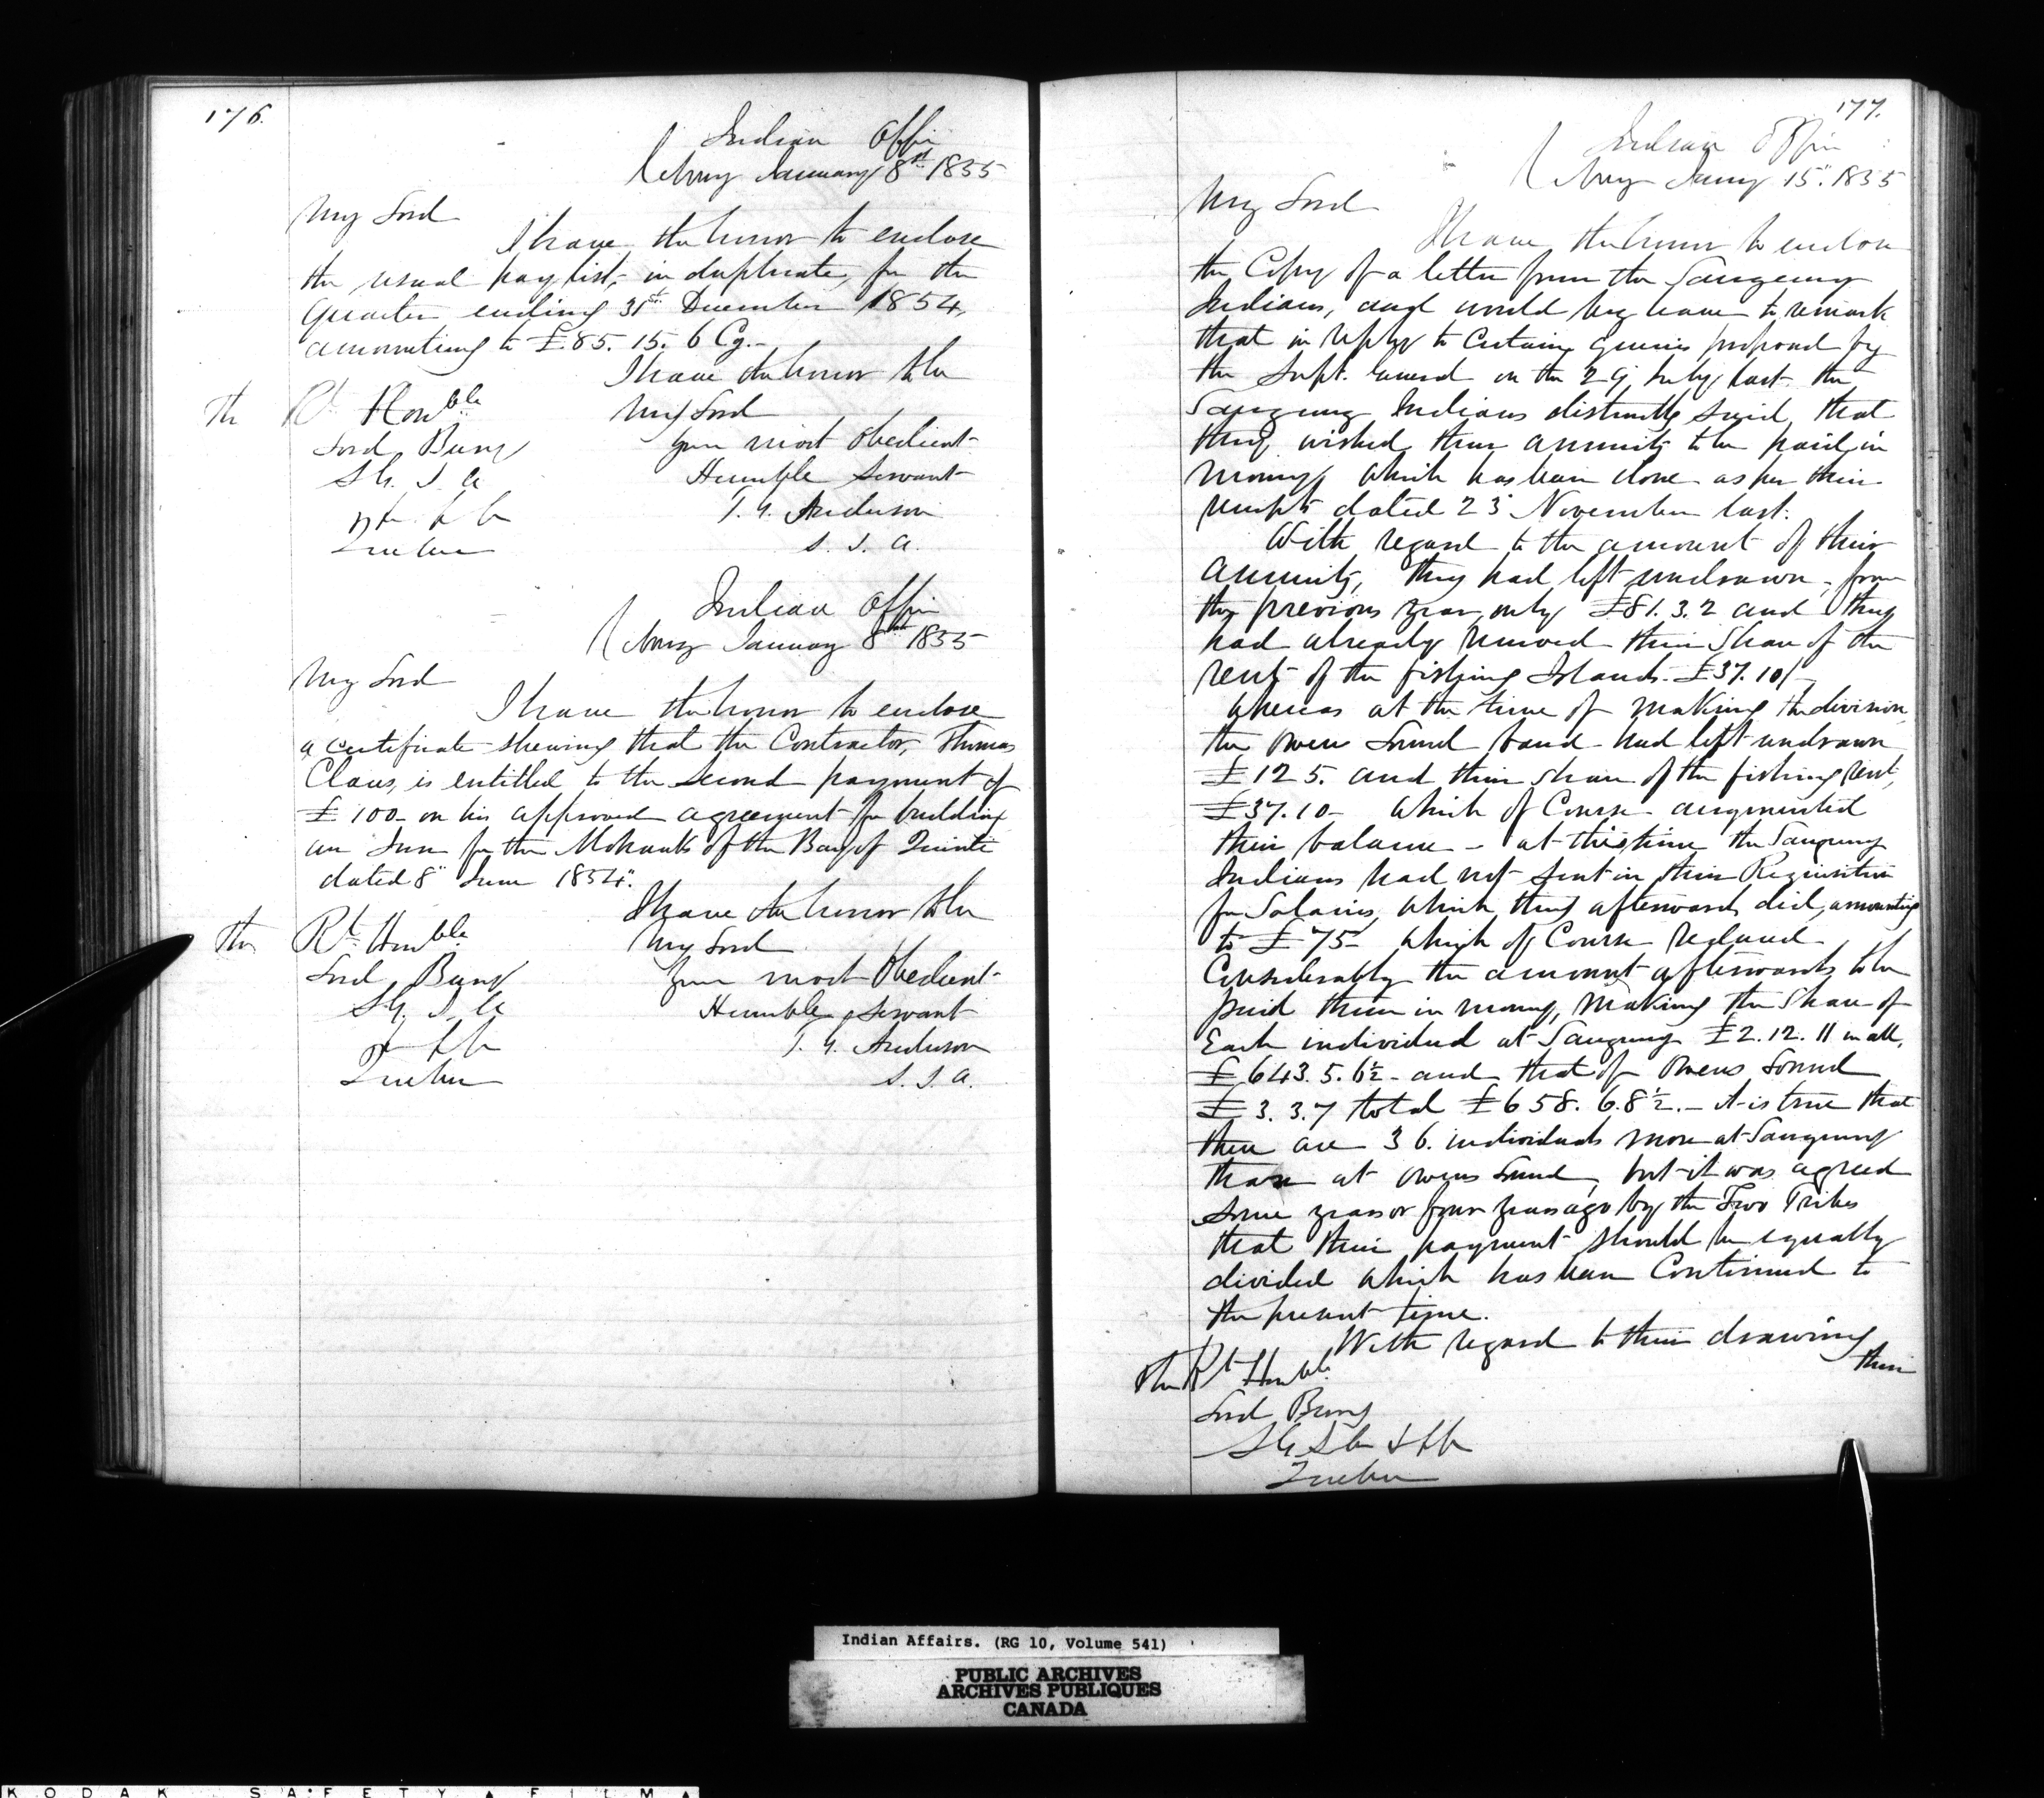 176.
Indian Office
Cobourg January 8th 1855
My Lord
I have the honor to enclose
the usual pay list, in duplicate, for the
Quarter ending 31st December 1854,
amounting to £85. 15. 6 Cy.-
I have the honor to be
The Rt Honble My Lord
Lord Bury your most obedient
S G. I. A Humble Servant
T. G. Anderson
Quebec S. I. A.
Indian Office
Cobourg January 8th 1855
My Lord
I have the honor to enclose
a certificate shewing that the Contractor, Thomas
Claus, is entitled to the second payment of
£100- on his approved agreement for building
an Inn for the Mohawks of the Bay of Quinté
dated 8" June 1854".
I have the honor to be
The Rt Honble My Lord
Lord Bury your most Obedient
S G. I. A Humble Servant
T. G. Anderson
Quebec S. I. A.
177.
Indian Office
Cobourg Jany 15". 1855
My Lord
I have the honor to enclose
the Copy of a letter from the Saugeeng
Indians, and would beg leave to remark
that in reply to certain queries proposed by
the Supt. General on the 29 July last the
Saugeeng Indians distinctly said that
they wished their annuity to be paid in
money, which has been done as per their
receipts dated 23 November last.
With regard to the amount of their
annuity, they had left undrawn, from
the previous year, only £81. 3. 2 and they
had already received their share of the
rent of the fishing Islands £37. 10/-
whereas at the time of making the division,
the Owen Sound band had left undrawn
£125. and their share of the fishing rent,
£37. 10- which of Course augmented
their balance - at this time the Saugeeng
Indians had not sent in their Requisition
for Salaries, which they afterwards did, amounting
to £75- which of Course reduced
Considerably the amount afterwards to be
paid them in money, making the share of
Each individual at Saugeeng £2. 12. 11 in all,
£643. 5. 6½ - and that of Owens Sound
£3. 3. 7 total £658. 6. 8½. - it is true that
there are 36. individuals more at Saugeeng
than at Owens Sound, but it was agreed
some years ago by the Two Tribes
that their payment should be equally
divided which has been Continued to
the present time.
With regard to their drawing
their
The Rt Honble
Lord Bury
Quebec
Indian Affairs. (RG 10, Volume 541)
PUBLIC ARCHIVES
ARCHIVES PUBLIQUES
CANADA
KODAK SAFETY FILM